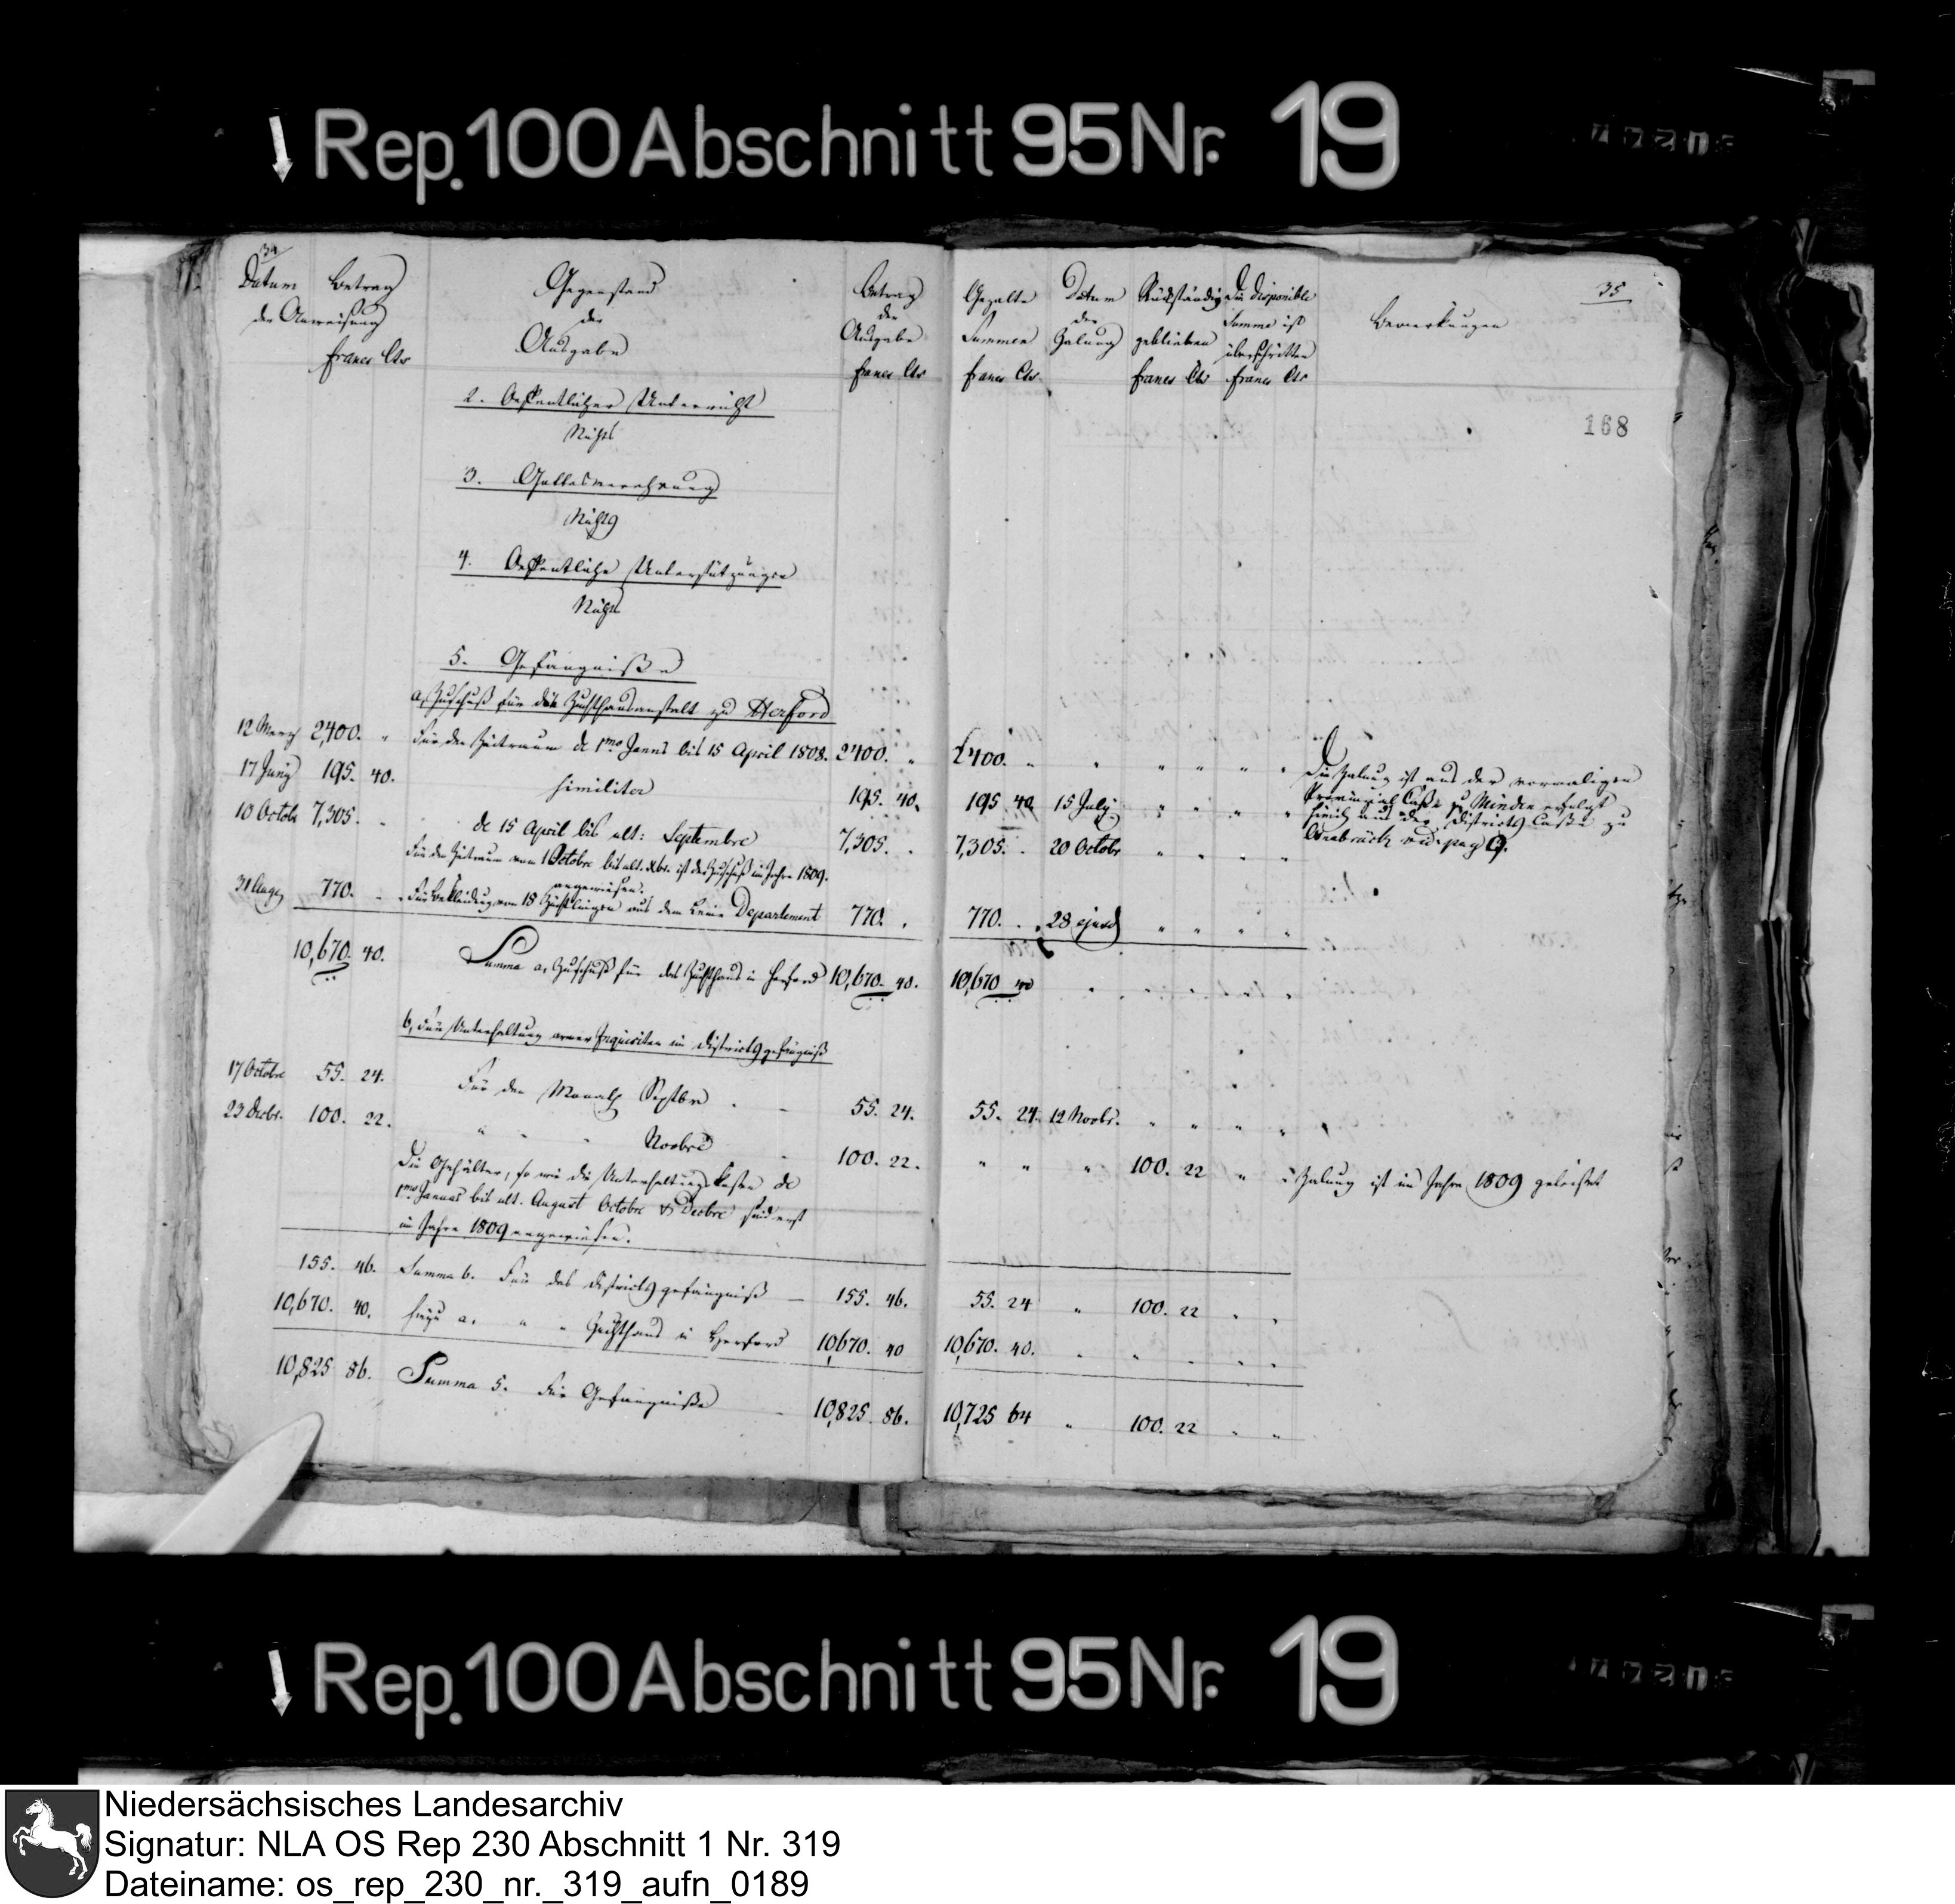 Rep. 100 Abschnitt 95 Nr. 19
34
Datum Betrag
der Anweisung
francs Cts
Gegenstand
der
Ausgabe
Betrag
der
Ausgabe
francs Cts
Gezalte
Summen
francs Cts.
Datum
der
Zalung
Rückständig
geblieben
francs Cts
Die disponible
Summe ist
überschritten
francs Cts
Bemerkungen
35
168
2. Oeffentlicher Unterricht
Nichts
3. Gottesverehrung
Nichts
4. Oeffentliche Unterstützungen
Nichts
5. Gefängniße
a, Zuschuß für die Zuchthausanstalt zu Herford
12 Merz 2,400. " Für den Zeitraum de 1mo Janrs bis 15 April 1808. 2400. " 2400. " " " " " "
17 Juny 195. 40. similiter 195. 40. 195 40 15 July " " " "
10 Octobr 7,305. . de 15 April bis ult: Septembre 7,305. . 7,305. . 20 Octobr " " " "
Die Zalung ist aus der vormaligen
Provinzial Caße zu Minden erfolgt
hinzu aus der Districts Caße zu
Osnabrück vid. pag 9.
Für den Zeitraum vom 1 Octobre bis ult. Xbr. ist der Zuschuß im Jahre 1809.
angewiesen.
31 Aug. 770. . Für Bekleidung von 18 Züchtlingen aus dem Leine Departement 770. . 770. . 28 ejusd " " " "
10,670. 40. Summa a, Zuschuß für das Zuchthaus in Herford 10,670. 40. 10,670 40
b, Für Unterhaltung armer Inquisiten im Districtsgefängniß
17 Octobre 55. 24. Für den Monath Septbre 55. 24. 55. 24. 12 Novbr. " " " "
23 Decbr. 100. 22. " " " Novbre 100. 22. " " " 100. 22 " " Zalung ist im Jahre 1809 geleistet
Die Gehälter, so wie die Unterhaltungskosten de
1mo Januar bis ult. August Octobre & Decbre sind erst
im Jahre 1809 angewiesen.
155. 46. Summa b. Für das Districtsgefängniß 155. 46. 55. 24 " 100. 22 " "
10,670. 40. hiezu a. " " Zuchthaus in Herford 10,670. 40 10,670. 40. " " " " "
10,825 86. Summa 5. Für Gefängniße 10,825. 86. 10,725 64 " 100. 22 " "
Rep. 100 Abschnitt 95 Nr. 19
Niedersächsisches Landesarchiv
Signatur: NLA OS Rep 230 Abschnitt 1 Nr. 319
Dateiname: os_rep_230_nr._319_aufn_0189